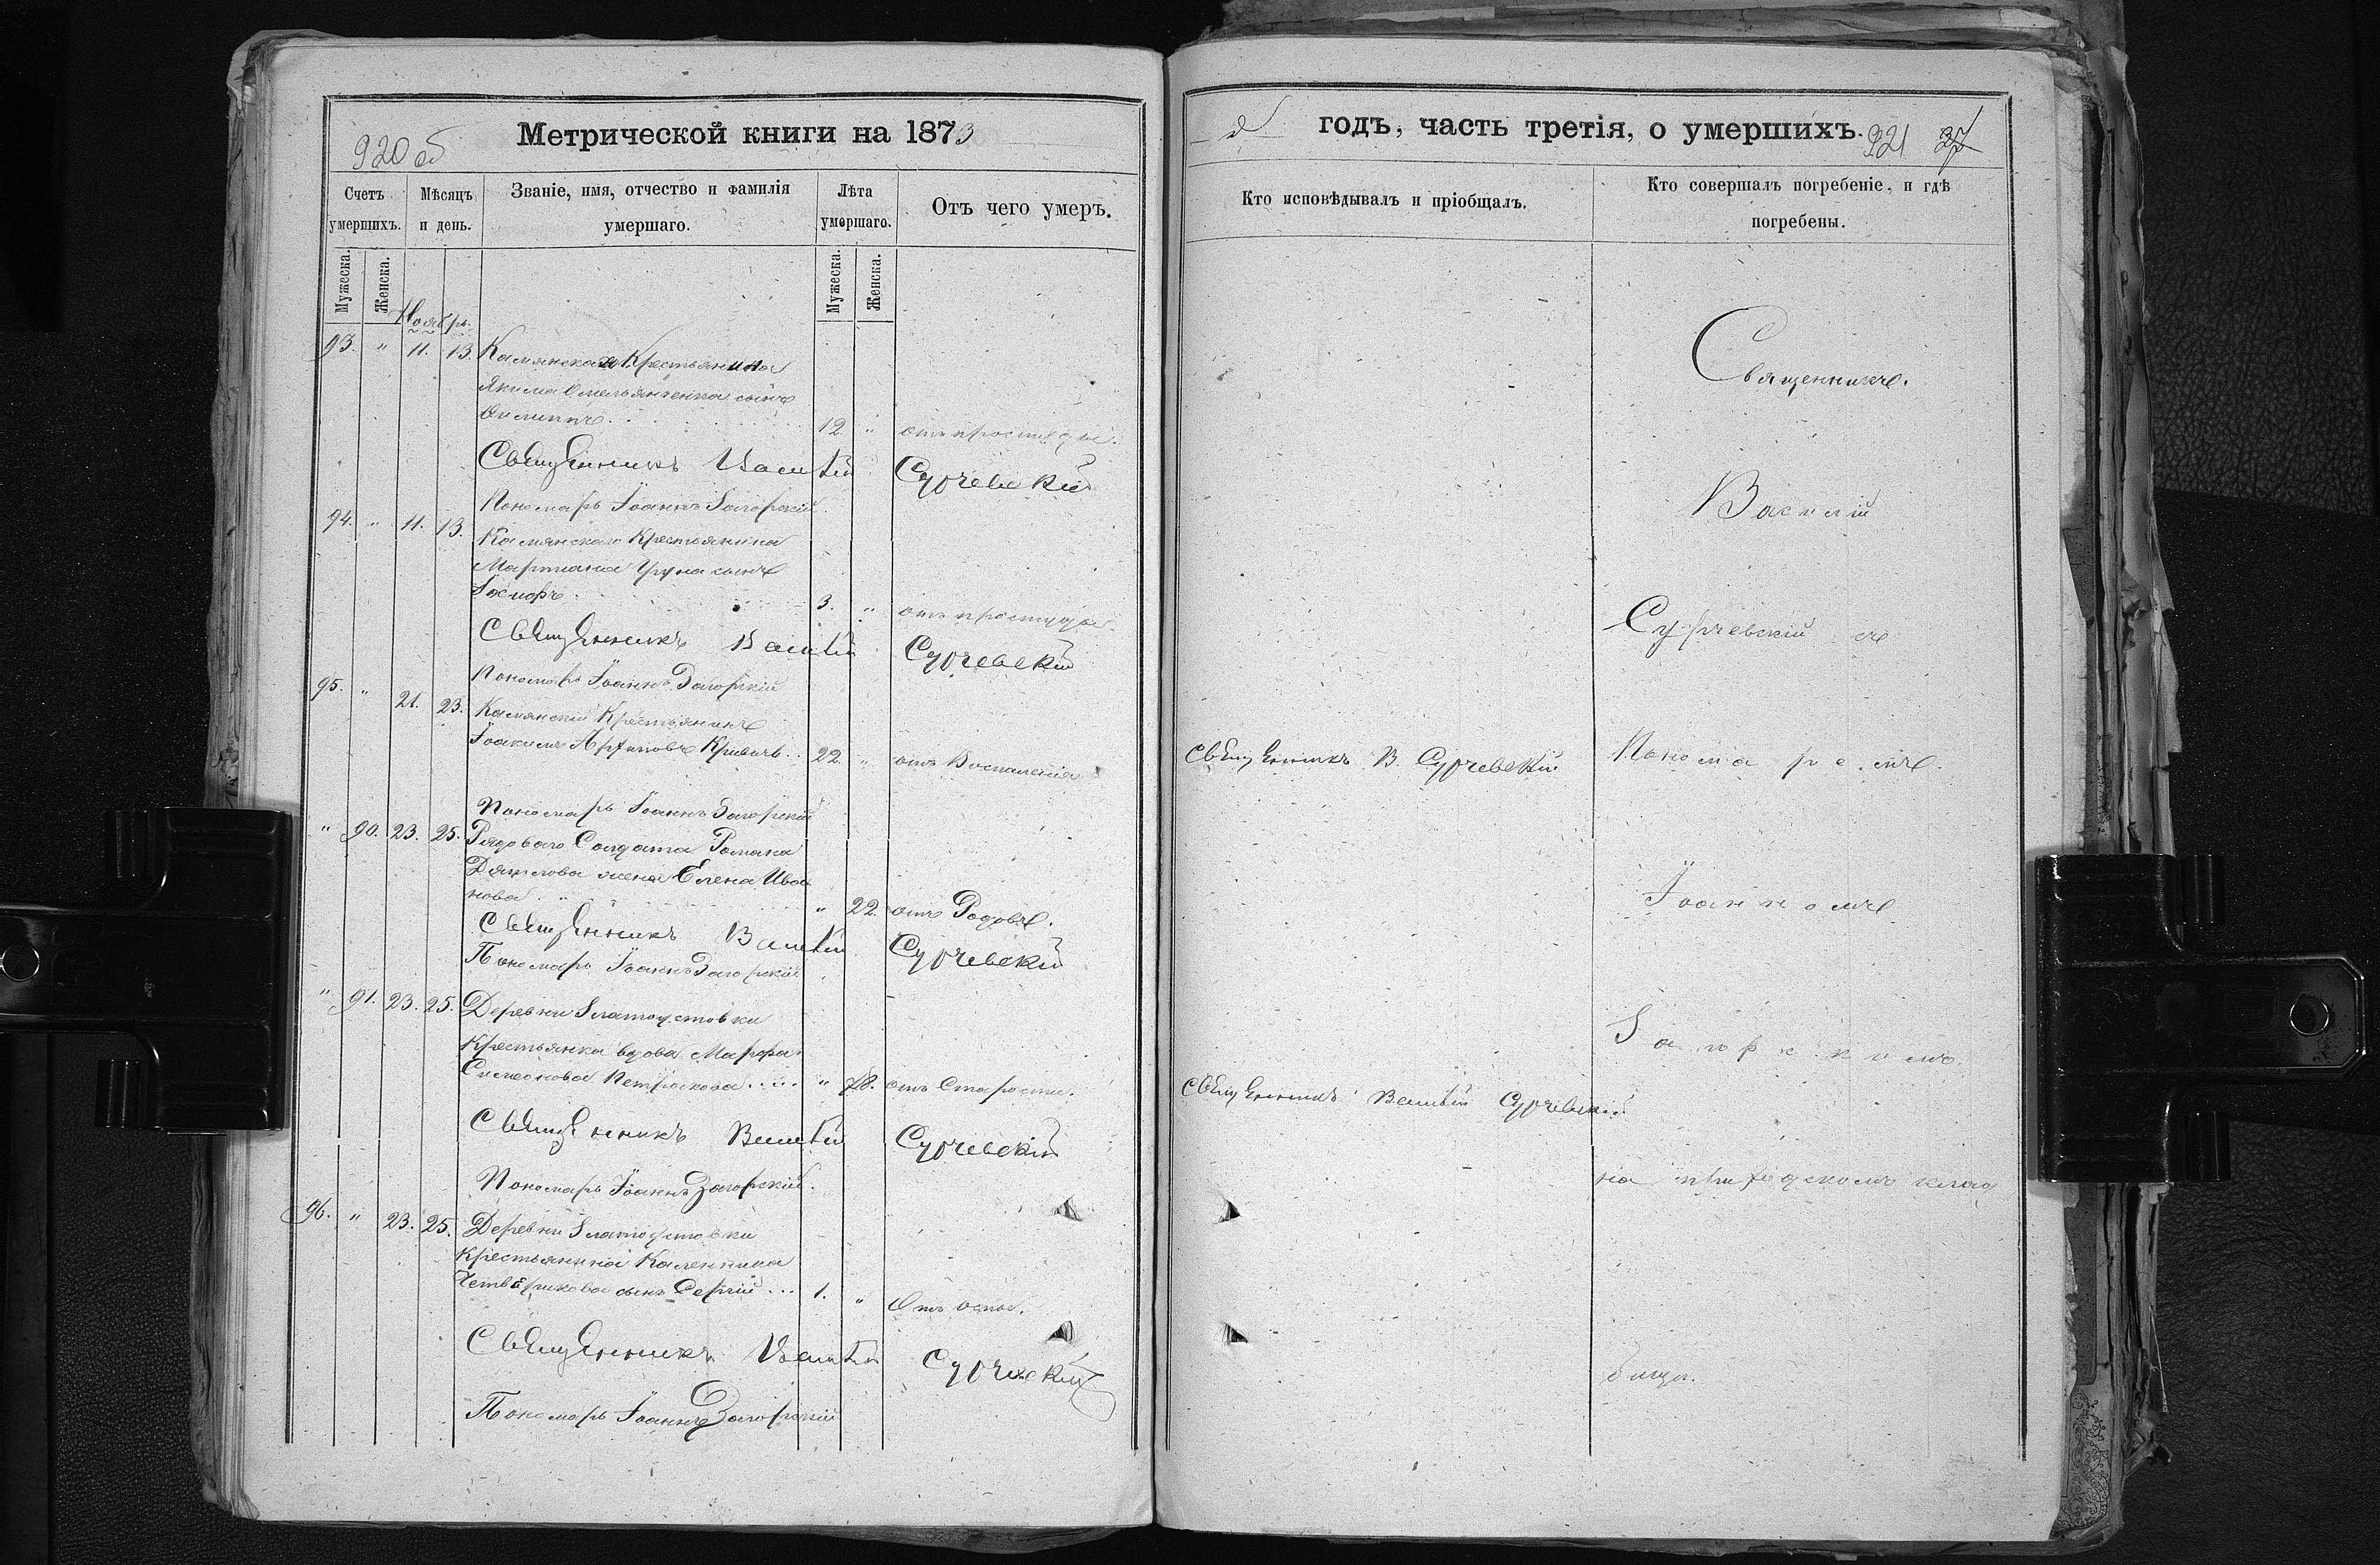 Метрической книги на 1873
920 об
Счетъ умершихъ.
Мѣсяцъ и день.
Званіе, имя, отчество и фамилія умершаго.
Лѣта умершаго.
Отъ чего умеръ.
Мужеска.
Женска.
Мужеска.
Женска.
Ноябрь.
93. " 11. 13. Камянскаго Крестьянина
Якима Омельянченка сынъ
Филиппъ. 12. " отъ простуды.
Священникъ Василій Сурчевскій
Пономарь Іоаннъ Загорскій
94. " 11. 13. Камянскаго Крестьянина
сынъ
Іосифъ. 3. " отъ простуды
Священникъ Василій Сурчевскій
Пономарь Іоаннъ Загорскій
95. " 21. 23. Камянскій Крестьянинъ
Іоакимъ 22. " отъ Воспаленія
Пономарь Іоаннъ Загорскій
" 90. 23. 25. Рядоваго Солдата Романа
жена Елена Ива
нова. " 22. отъ Родовъ.
Священникъ Василій Сурчевскій
Пономарь Іоаннъ Загорскій
" 91. 23. 25. Деревни Златоустовки
Крестьянка вдова Марфа
Симеонова Петракова.... " 78. отъ Старости.
Священникъ Василій Сурчевскій
Пономарь Іоаннъ Загорскій.
96. " 23. 25. Деревни Златоустовки
Крестьянина Каленника
Четверикова сынъ Сергій... 1. " Отъ оспы.
Священникъ Василій Сурчевскій
Пономарь Іоаннъ Загорскій
годъ, часть третія, о умершихъ.
921 37
Кто исповѣдывалъ и пріобщалъ.
Кто совершалъ погребеніе, и гдѣ погребены.
Священникъ.
Василій
Сурчевскій съ
Священникъ В. Сурчевскій
Пономаремъ
Іоанномъ
Загорскимъ
Священникъ Василій Сурчевскій
на приходскомъ клад
бищи.